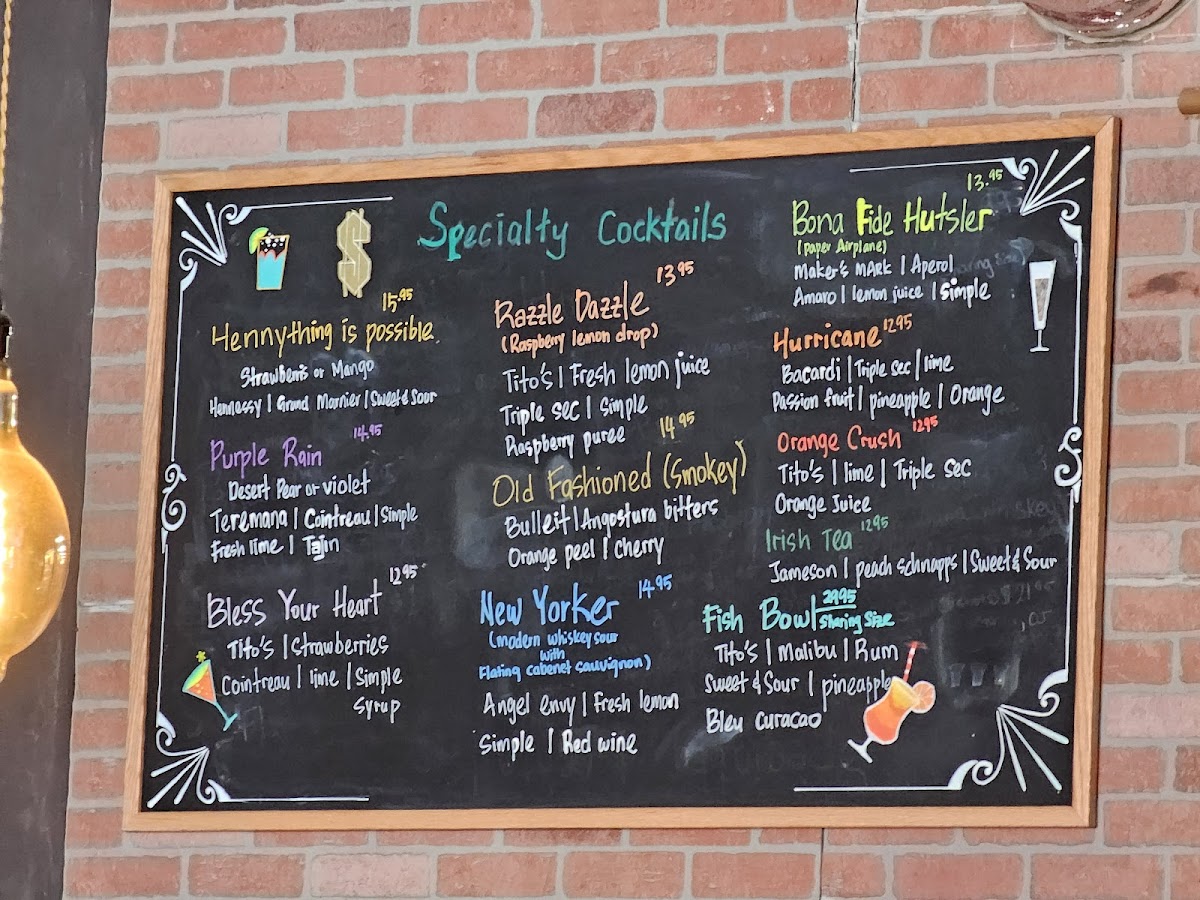 Specialty Cocktails
15.95
Hennything is possible.
Strawberris or Mango
Hennessy | Grand Marnier | Sweet & Sour
14.95
Purple Rain
Desert Pear or violet
Teremana | Cointreau | Simple
Fresh lime | Tajin
12.95
Bless Your Heart
Tito's | Strawberries
Cointreau | lime | Simple
Syrup
13.95
Razzle Dazzle
(Raspberry lemon drop)
Tito's | Fresh lemon juice
Triple sec | Simple
Raspberry puree
14.95
Old Fashioned (Smokey)
Bulleit | Angostura bitters
Orange peel | Cherry
New Yorker 14.95
(modern whiskey sour
with
Flating cabenet sauvignon)
Angel envy | Fresh lemon
Simple | Red wine
13.95
Bona Fide Hutsler
(paper Airplane)
Maker's mark | Aperol
Amaro | lemon juice | Simple
Hurricane 12.95
Bacardi | Triple sec | lime
Passion fruit | pineapple | Orange
Orange Crush 12.95
Tito's | lime | Triple sec
Orange Juice
Irish Tea 12.95
Jameson | peach schnapps | Sweet & Sour
Fish Bowl 29.95
Sharing Size
Tito's | Malibu | Rum
Sweet & Sour | pineapple
Bleu curacao